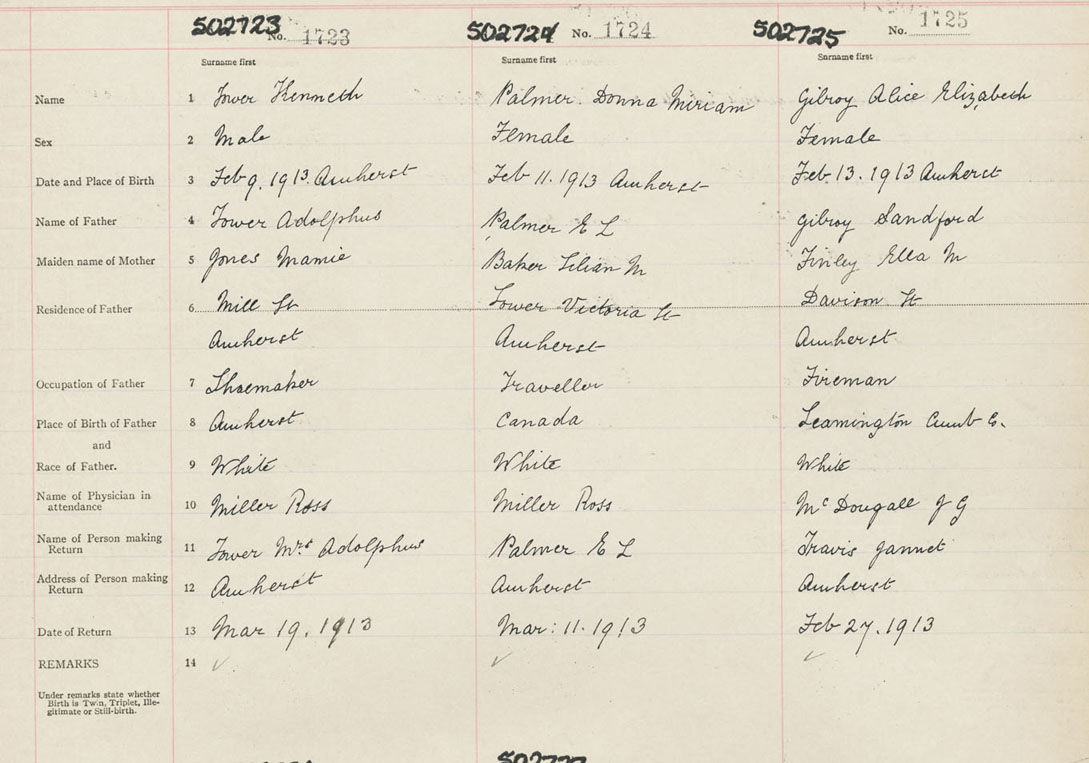 502723 No. 1723 502724 No. 1724 502725 No. 1725
Surname first Surname first Surname first
Name 1 Tower Kenneth Palmer. Donna Miriam Gilroy Alice Elizabeth
Sex 2 Male Female Female
Date and Place of Birth 3 Feb 9. 1913. Amherst Feb 11. 1913 Amherst Feb 13. 1913 Amherst
Name of Father 4 Tower Adolphus Palmer E L Gilroy Sandford
Maiden name of Mother 5 Jones Mamie Baker Lilian M Finley Ella M
Residence of Father 6 Mill St Lower Victoria St Davison St
Amherst Amherst Amherst
Occupation of Father 7 Shoemaker Traveller Fireman
Place of Birth of Father 8 Amherst Canada Leamington Cumb C.
and
Race of Father. 9 White White White
Name of Physician in
attendance 10 Miller Ross Miller Ross McDougall J G
Name of Person making
Return 11 Tower Mrs Adolphus Palmer E L Travis Jannet
Address of Person making
Return 12 Amherst Amherst Amherst
Date of Return 13 Mar 19, 1913 Mar: 11. 1913 Feb 27. 1913
REMARKS 14 ✓ ✓ ✓
Under remarks state whether
Birth is Twin, Triplet, Ille-
gitimate or Still-birth.